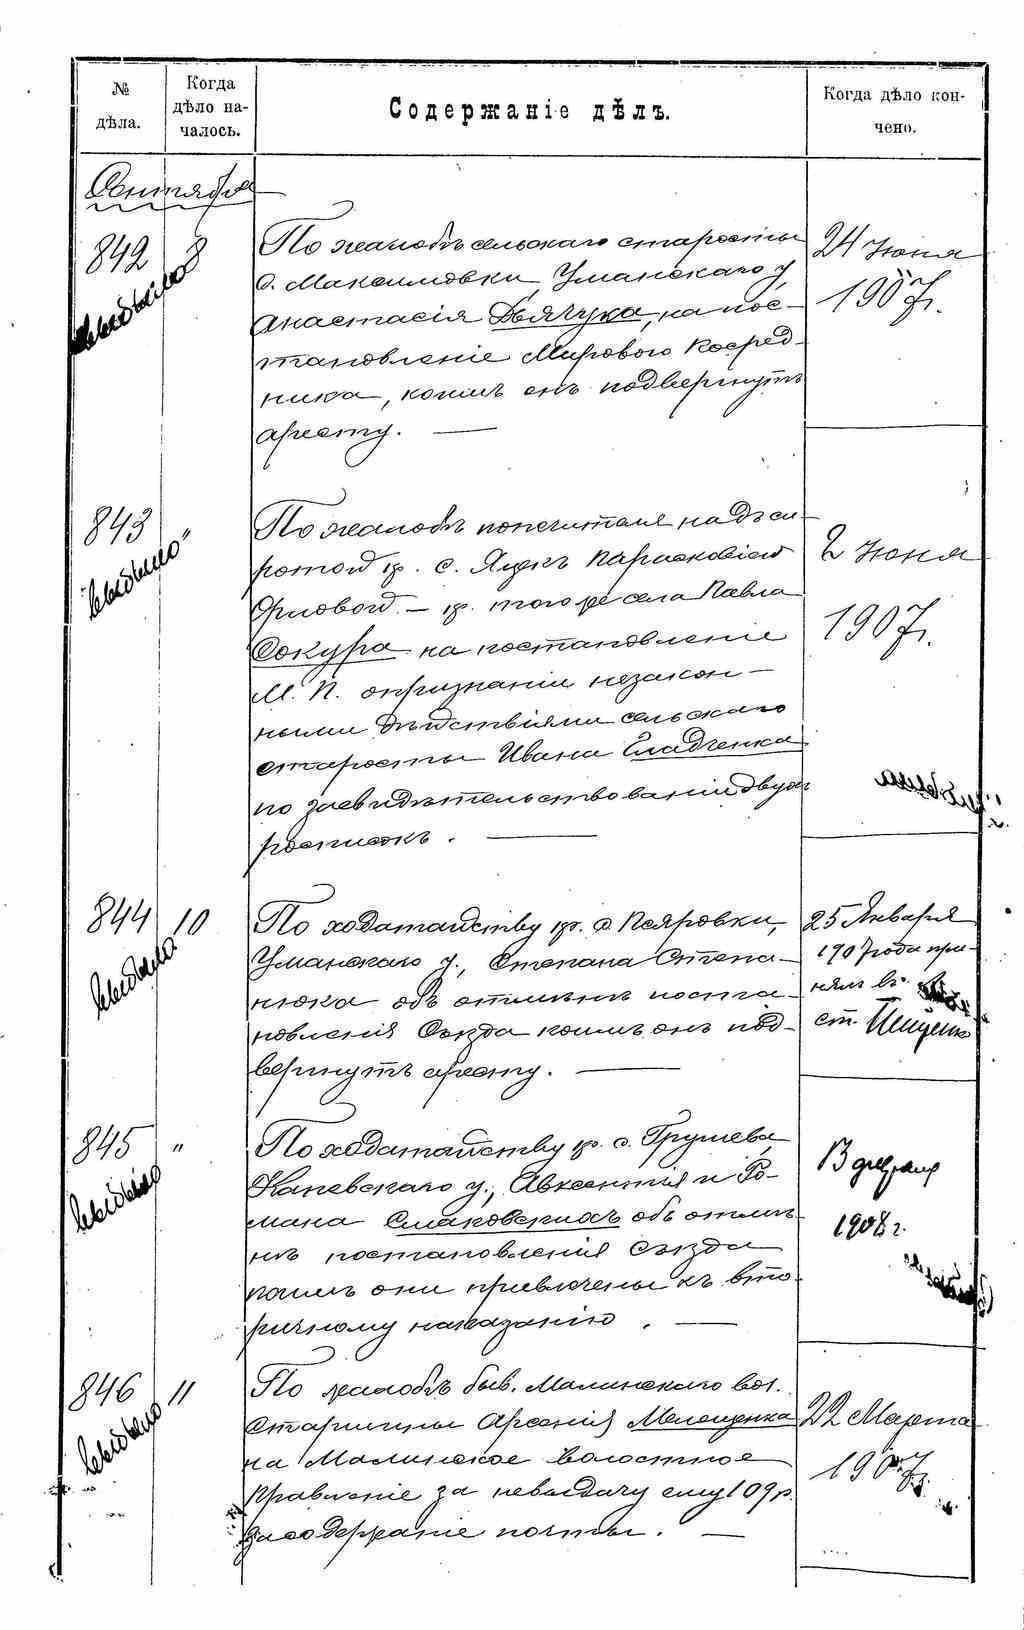 № дѣла.
Когда дѣло началось.
Содержаніе дѣлъ.
Когда дѣло кончено.
Сентября
842
8
По жалобѣ сельскаго старосты
с. Максимовки, Уманскаго у,
Анастасія Дьячука, на пос-
тановленіе Мирового Посред-
ника, коимъ онъ подвергнутъ
аресту. —
24 Іюня
1907 г.
843
"
По жалобѣ попечителя надъ си-
ротой кр. с. Яцекъ Парасковіей
Орловой — кр. того же села Павла
Сокура на постановленіе
М. П. о признаніи незакон-
ными дѣйствіями сельскаго
старосты Ивана Гладченка
по засвидѣтельствованіи двухъ
росписокъ. —
2 Іюня
1907 г.
844
10
По ходатайству кр. с. Псяровки,
Уманскаго у., Степана Степа-
нюка объ отмѣнѣ поста-
новленія Съѣзда коимъ онъ под-
вергнутъ аресту. —
25 Января
1907 года при-
нялъ въ
ст. Пищенко
845
"
По ходатайству кр. с. Грушева,
Каневскаго у., Авксентія и Ро-
мана Смаковскихъ объ отмѣ-
нѣ постановленія Съѣзда
коимъ они привлечены къ вто-
ричному наказанію. —
13 февраля
1908 г.
846
11
По жалобѣ быв. Малинскаго вол.
Старшины Арсенія Мелещенка
на Малинское волостное
Правленіе за невыдачу ему 109 р.
за содержаніе почты. —
22 Марта
1907 г.